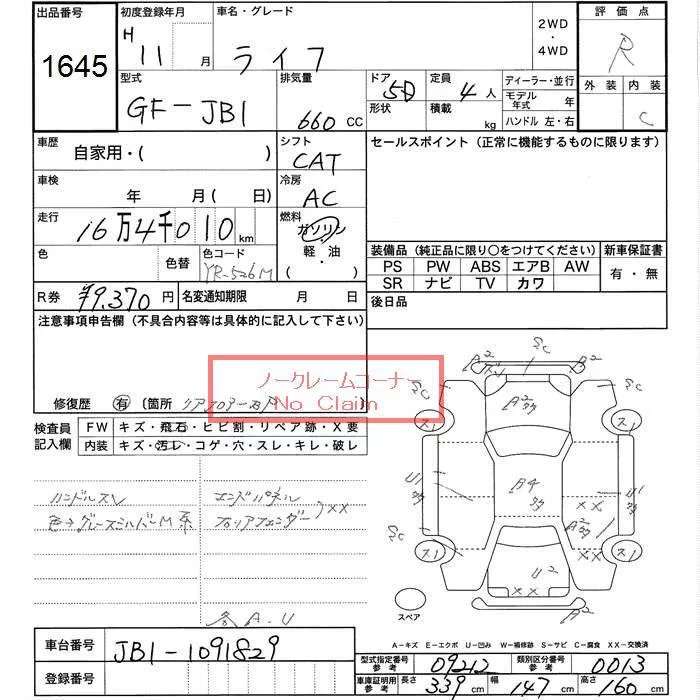 出品番号
1645
初度登録年月
H 11 月
車名・グレード
ライフ
2WD
・
4WD
評価点
R
外装 内装
C
型式
GF-JB1
排気量
660 CC
ドア 5D
形状
定員 4 人
積載 kg
ディーラー・並行
モデル年式 年
ハンドル 左・右
車歴
自家用・( )
シフト
CAT
セールスポイント (正常に機能するものに限ります)
車検
年 月 ( 日)
冷房
AC
走行
16万4千010 km
燃料
ガソリン
軽・油
( )
色
色替
色コード
YR-526M
装備品 (純正品に限り〇をつけてください)
新車保証書
PS PW ABS エアB AW
SR ナビ TV カワ
有・無
R券 ¥9,370 円
名変通知期限 月 日
後日品
注意事項申告欄 (不具合内容等は具体的に記入して下さい)
ノークレームコーナー
No Claim
修復歴 有 〔箇所
検査員記入欄
FW キズ・飛石・ヒビ割・リペア跡・X要
内装 キズ・汚レ・コゲ・穴・スレ・キレ・破レ
ハンドルスレ
エンドパネル
リアフェンダー XX
各A.U
SC
A2
B2
SC
SC
ス1
ス1
A2
U1
A4
U1
XX
A2
XX
SC
SC
ス1
ス1
U2
XX
A2
スペア
A-キズ E-エクボ U-凹み W-補修跡 S-サビ C-腐食 XX-交換済
車台番号
JB1-1091829
登録番号
型式指定番号参考 09212
類別区分番号参考 0013
車庫証明用参考 長さ 339 cm 幅 147 cm 高さ 160 cm